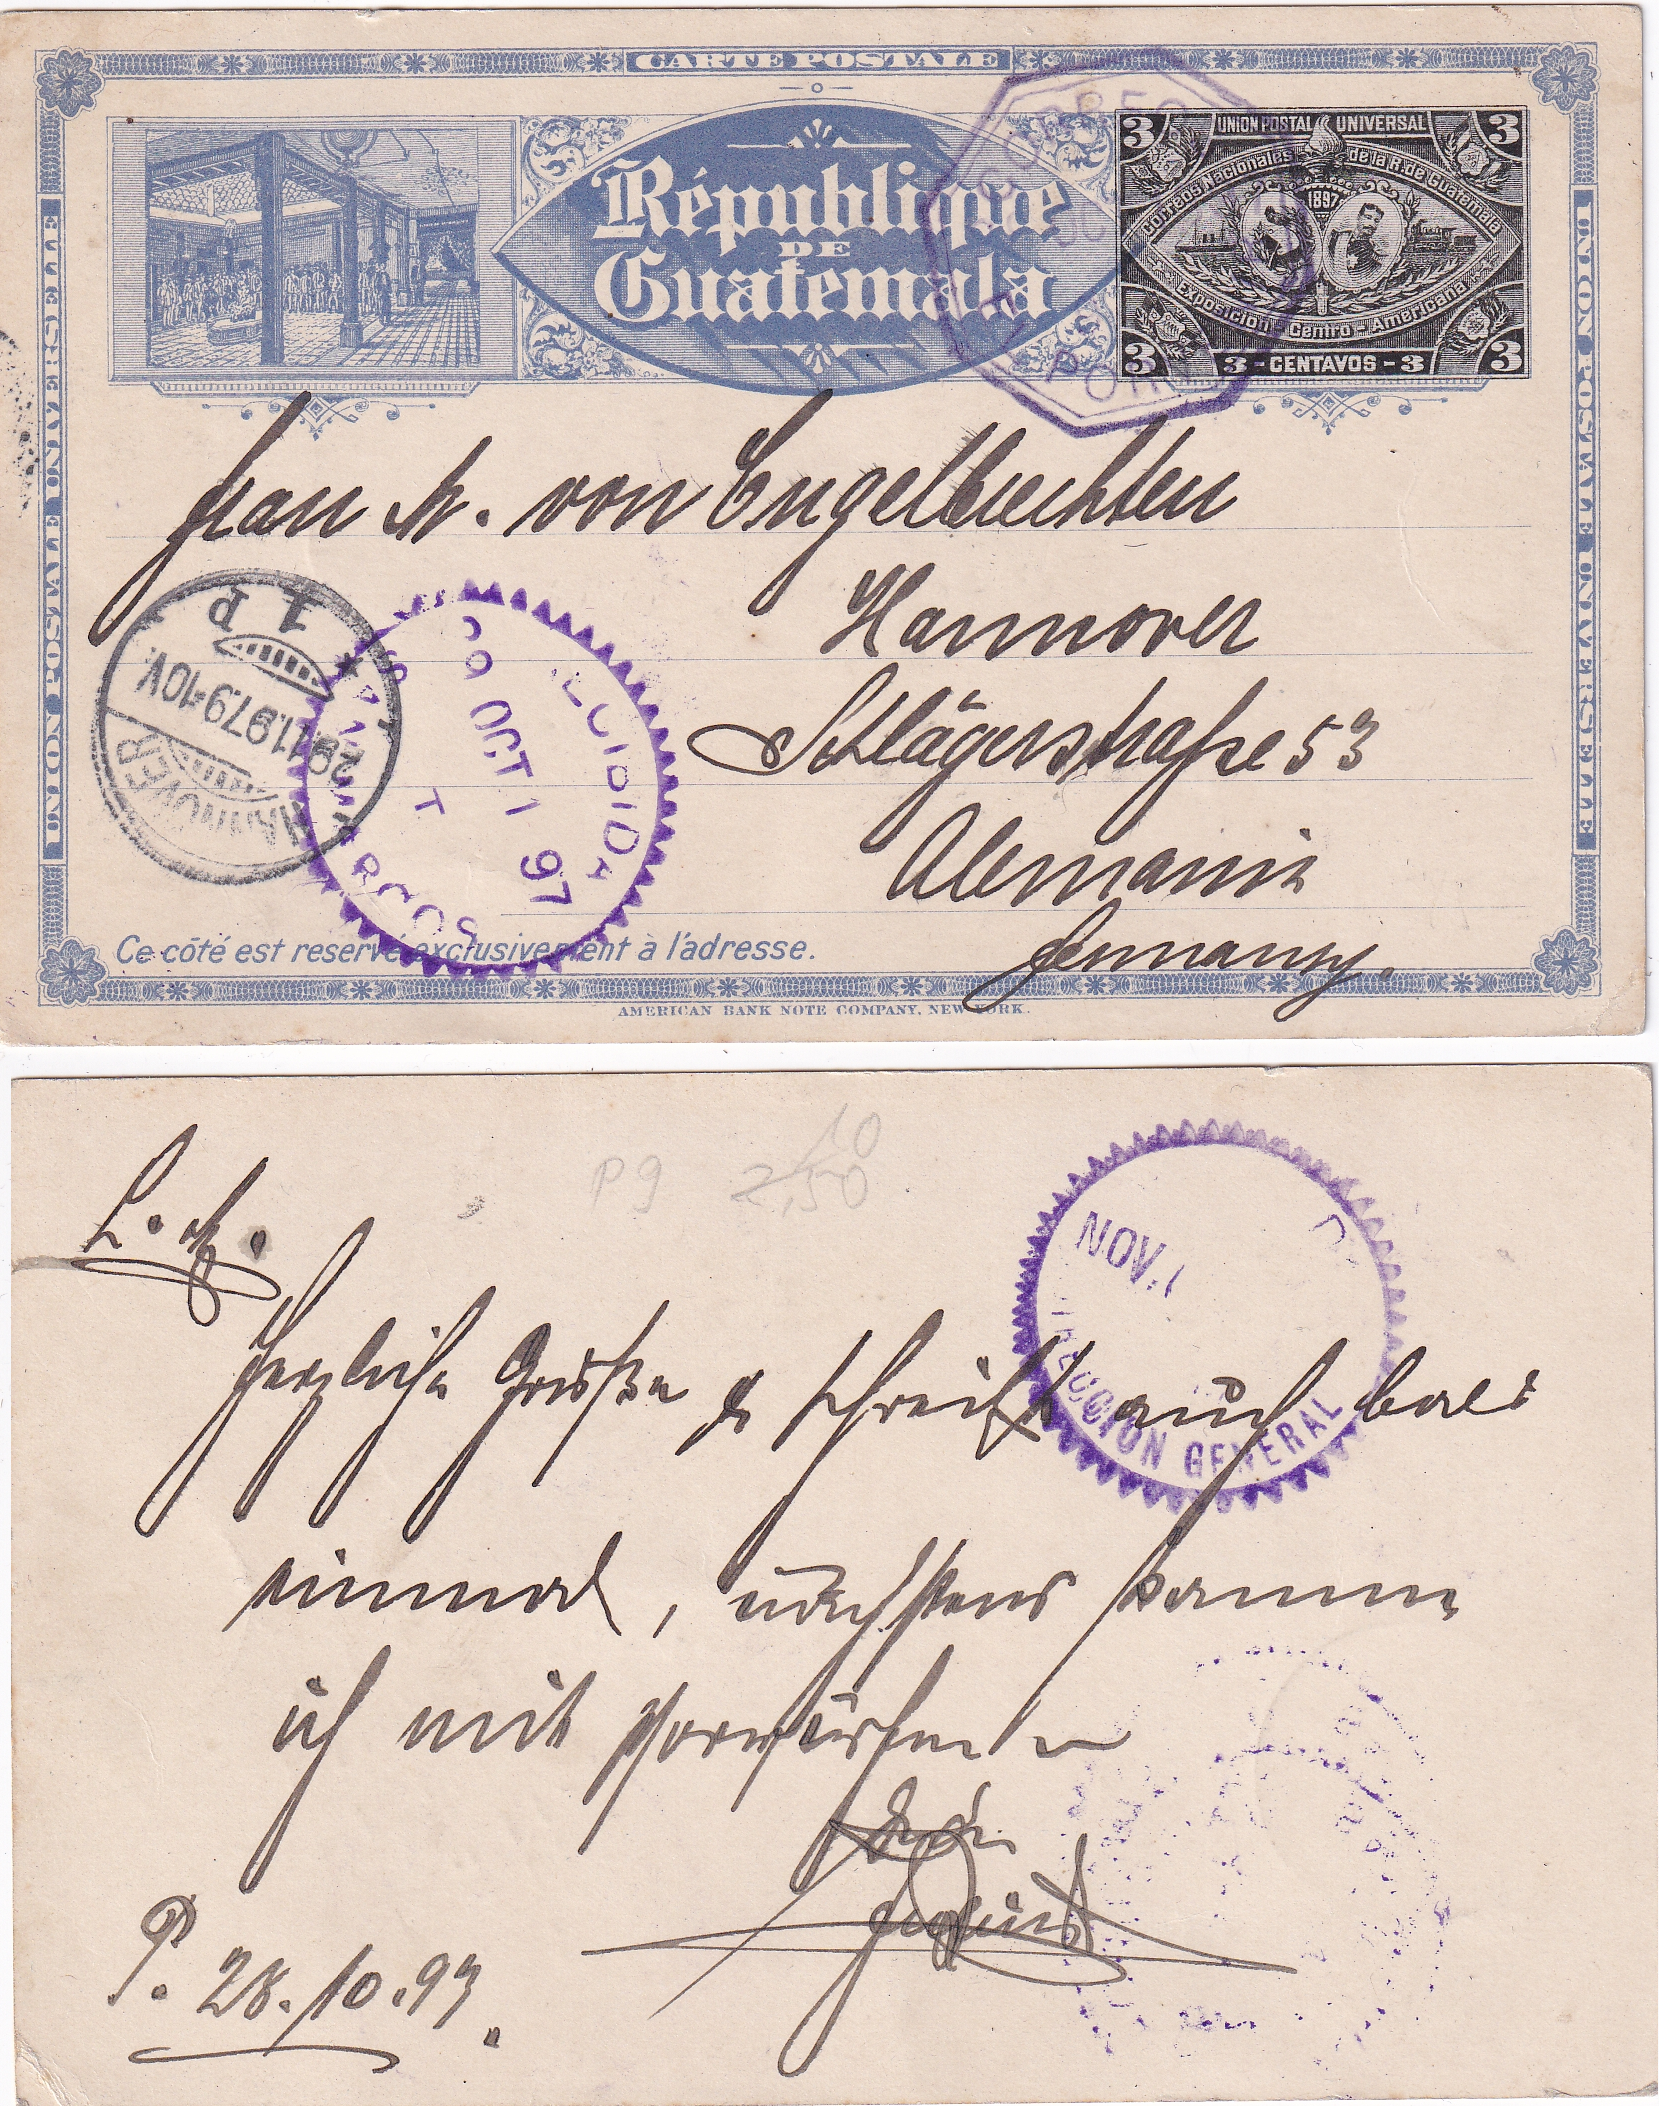 CARTE POSTALE
UNION POSTALE UNIVERSELLE
UNION POSTALE UNIVERSELLE
République
DE
Guatemala
CORREO
3 UNION POSTAL UNIVERSAL 3
Correos Nacionales de la R. de Guatemala
1897
Exposición - Centro - Americana
3 3 - CENTAVOS - 3 3
Frau A. von Engelbrechten
Hannover
Schlägerstraße 53
Alemania
Germany.
HANNOVER
29.11.97.9-10V.
1 P
29 OCT 1 97
Ce côté est reservé exclusivement à l'adresse.
AMERICAN BANK NOTE COMPANY, NEW YORK.
P 9 2,50
10
NOV. 1
DIRECCION GENERAL
L. A.
Herzliche Grüße & schreibt auch bald
einmal, nächstens komme
ich mit
Dein
P. 28.10.97.